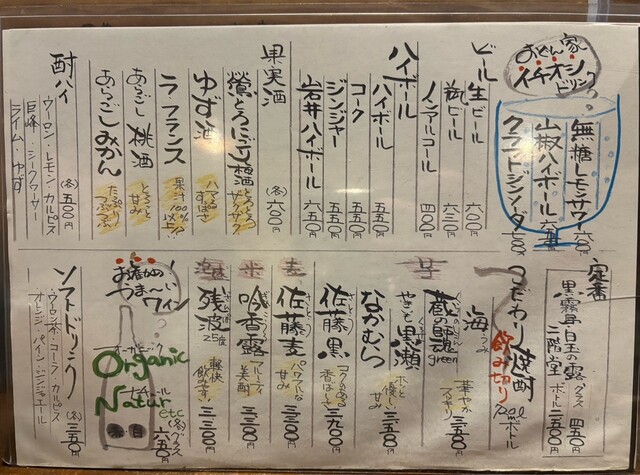 おでん家
イチオシ
ドリンク
無糖レモンサワー 六〇〇
山椒ハイボール
クラフトジンソーダ
ビール
生ビール 六〇〇
瓶ビール 六三〇
ノンアルコール 四〇〇
ハイボール
ハイボール 五五〇
コーク 五五〇
ジンジャー 五五〇
岩井ハイボール 六五〇
果実酒 (各)六〇〇
鶯とろにごり梅酒
ゆず酒
ラフランス 果汁100%以上!!
あらごし桃酒 とろとろ甘み
あらごしみかん たっぷりつぶつぶ
酎ハイ (各)五〇〇
ウーロン・レモン・カルピス
巨峰・シークワーサー
ライム・ゆず
定番
黒霧島 白玉の露 グラス 四五〇
二階堂 ボトル 二五〇〇
こだわり焼酎
飲み切り
ボトル
芋
海
蔵の師魂 green 華やかフルーティ 三五〇〇
やきいも黒瀬 ホッと優しい甘み 三三五〇
なかむら
佐藤 黒 コクのある香ばしさ 三九〇〇
麦
佐藤 麦 パワフルな甘み
米
吟香露 フルーティー美酒 三三〇〇
泡
残波 25度 軽快飲みやすい 三三〇〇
お薦め
うま〜い
ワイン
Organic
Natur
etc
(各)グラス
六五〇
赤 白
ソフトドリンク (各)三五〇
ウーロン茶・コーラ・カルピス
オレンジ・パイン・ジンジャエール